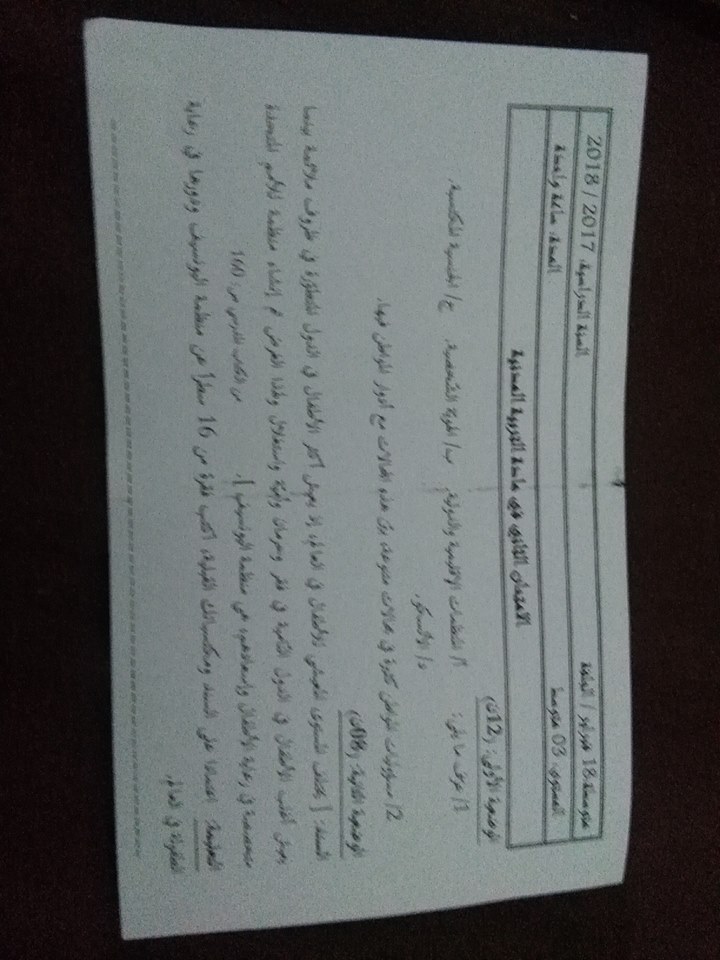 متوسطة 18 فبراير / الجلفة السنة الدراسية: 2017 / 2018
المستوى: 03 متوسط المدة: ساعة واحدة
الامتحان الثاني في مادة التربية المدنية
الوضعية الأولى: (12ن)
1/ عرف ما يلي: أ/ المنظمات الإقليمية والدولية. ب/ الهوية الشخصية. ج/ الجنسية المكتسبة.
د/ الألسكو.
2/ مسؤوليات المواطن كثيرة في مجالات متنوعة، بيّن هذه المجالات مع أدوار المواطن فيها.
الوضعية الثانية: (08ن)
السند: [ يختلف المستوى المعيشي للأطفال في العالم، إذ يعيش أكثر الأطفال في الدول المتطورة في ظروف ملائمة بينما
يعيش أغلب الأطفال في الدول النامية في فقر وحرمان وأوبئة واستغلال ولهذا الغرض تم إنشاء منظمة للأمم المتحدة
متخصصة في رعاية الأطفال وإسعادهم، هي منظمة اليونسيف ]. من الكتاب المدرسي ص: 160
التعليمة: اعتمادا على السند ومكتسباتك القبلية، أكتب فقرة من 16 سطراً عن منظمة اليونسيف ودورها في رعاية
الطفولة في العالم.